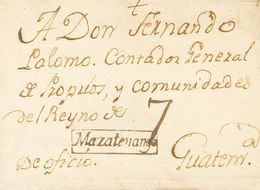 A Don Fernando
Palomo. Contador General
de Propios, y comunidades
del Reyno de 7
Mazatenango
De oficio. Guatemª